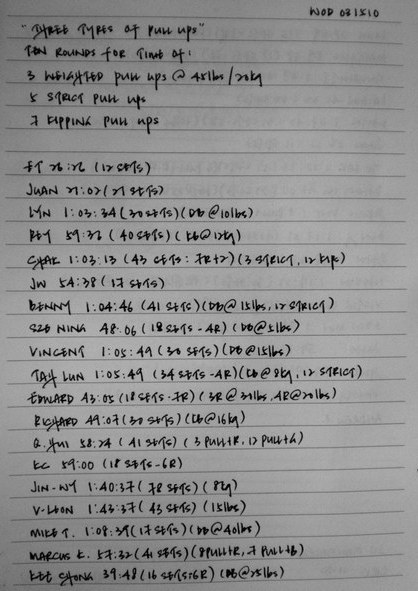 WOD 031510
"THREE TYPES OF PULL UPS"
TEN ROUNDS FOR TIME OF:
3 WEIGHTED PULL UPS @ 45lbs/20kg
5 STRICT PULL UPS
7 KIPPING PULL UPS
ET 26:26 (12 SETS)
JUAN 21:02 (21 SETS)
LYN 1:03:34 (30 SETS) (DB@10lbs)
REY 59:36 (40 SETS) (KB@12kg)
CHAK 1:03:13 (43 SETS: 7R+2) (3 STRICT, 12 KIPS)
JW 54:38 (17 SETS)
BENNY 1:04:46 (41 SETS) (DB@15lbs, 12 STRICT)
SZE NING 48:06 (18 SETS-4R) (DB@5lbs)
VINCENT 1:05:49 (30 SETS) (DB@15lbs)
TAH LUN 1:05:49 (34 SETS-4R) (KB@8kg, 12 STRICT)
EDWARD 43:05 (18 SETS-7R) (3R@30lbs, 4R@20lbs)
RICHARD 49:07 (30 SETS) (KB@16kg)
Q. HUI 58:24 (41 SETS) (3 PULL+R, 12 PULL+G)
KC 59:00 (18 SETS-6R)
JIN-NY 1:40:37 (78 SETS) (8kg)
V-LOON 1:43:37 (43 SETS) (15lbs)
MIKE T. 1:08:39 (17 SETS) (DB@40lbs)
MARCUS K. 57:32 (41 SETS) (8PULL+R, 7 PULL+B)
KEE CHONG 39:48 (16 SETS:6R) (DB@25lbs)